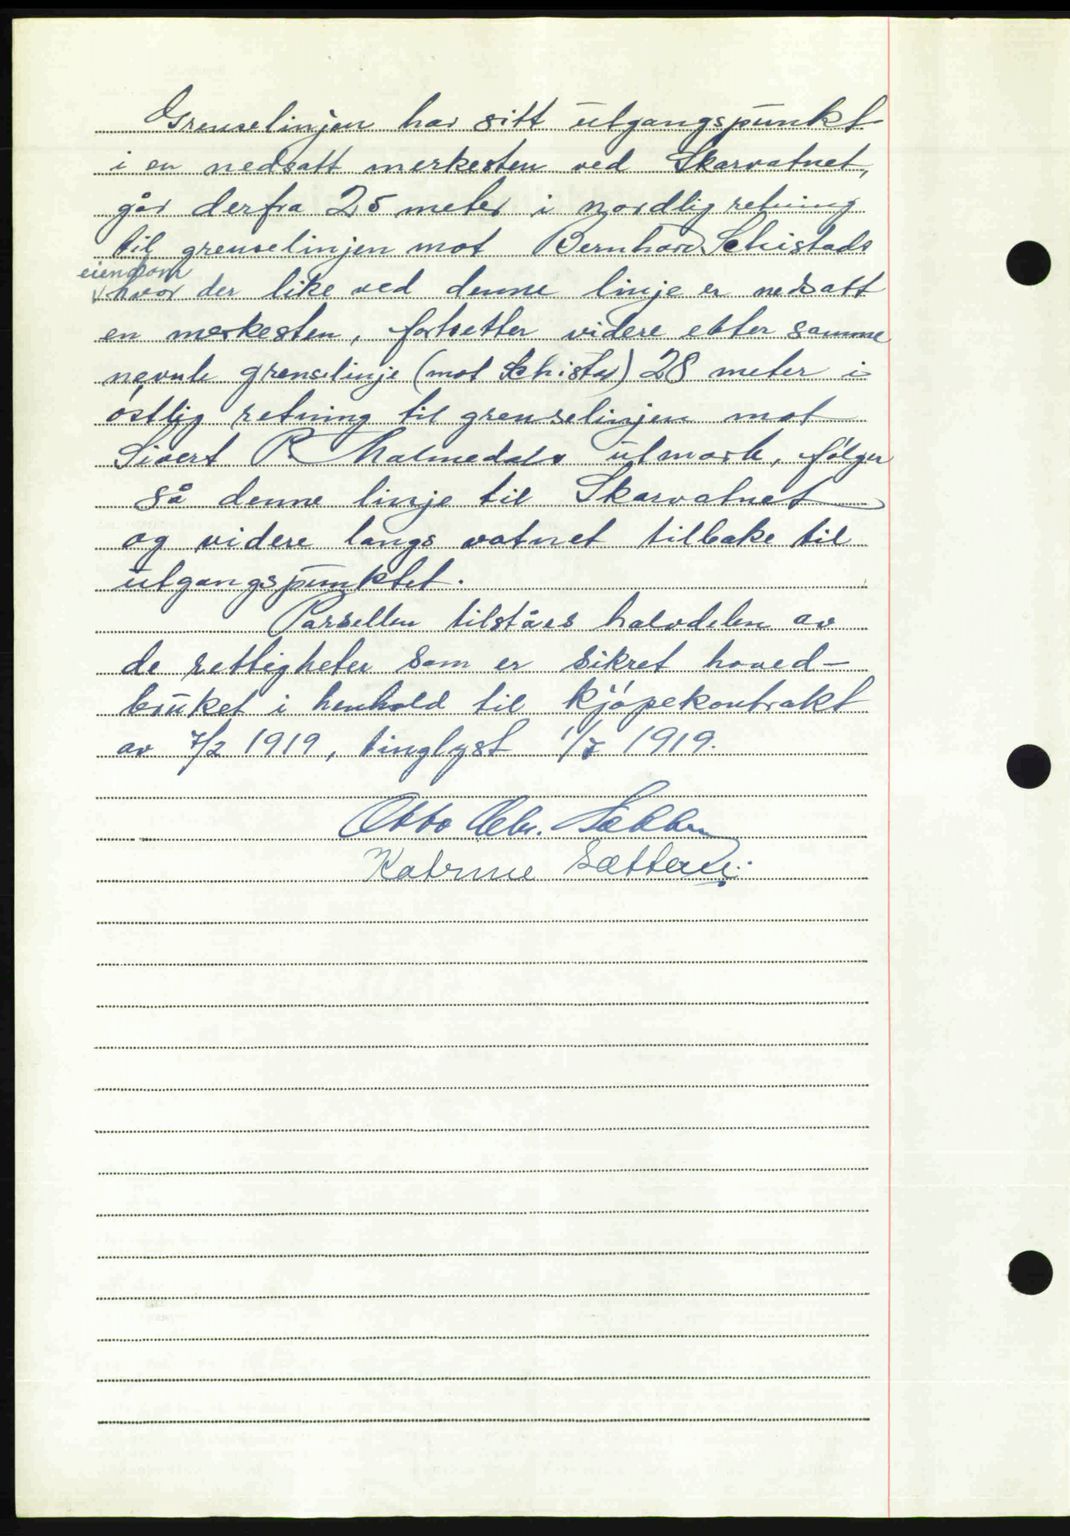 Grenselinjen har sitt utgangspunkt
i en nedsatt merkesten ved Skarvatnet,
går derfra 25 meter i nordlig retning
til grenselinjen mot Bernhard Schistads
eiendom
hvor der like ved denne linje er nedsatt
en merkesten, fortsetter videre etter samme
nevnte grenselinje (mot Schistad) 28 meter i
østlig retning til grenselinjen mot
Sivert P. Malmedals utmark, følger
så denne linje til Skarvatnet
og videre langs vatnet tilbake til
utgangspunktet.
Parsellen tilståes halvdelen av
de rettigheter som er sikret hoved-
bruket i henhold til kjøpekontrakt
av 7/2 1919, tinglyst 1/7 1919.
Otto Chr. Sætter
Katrine Sætter